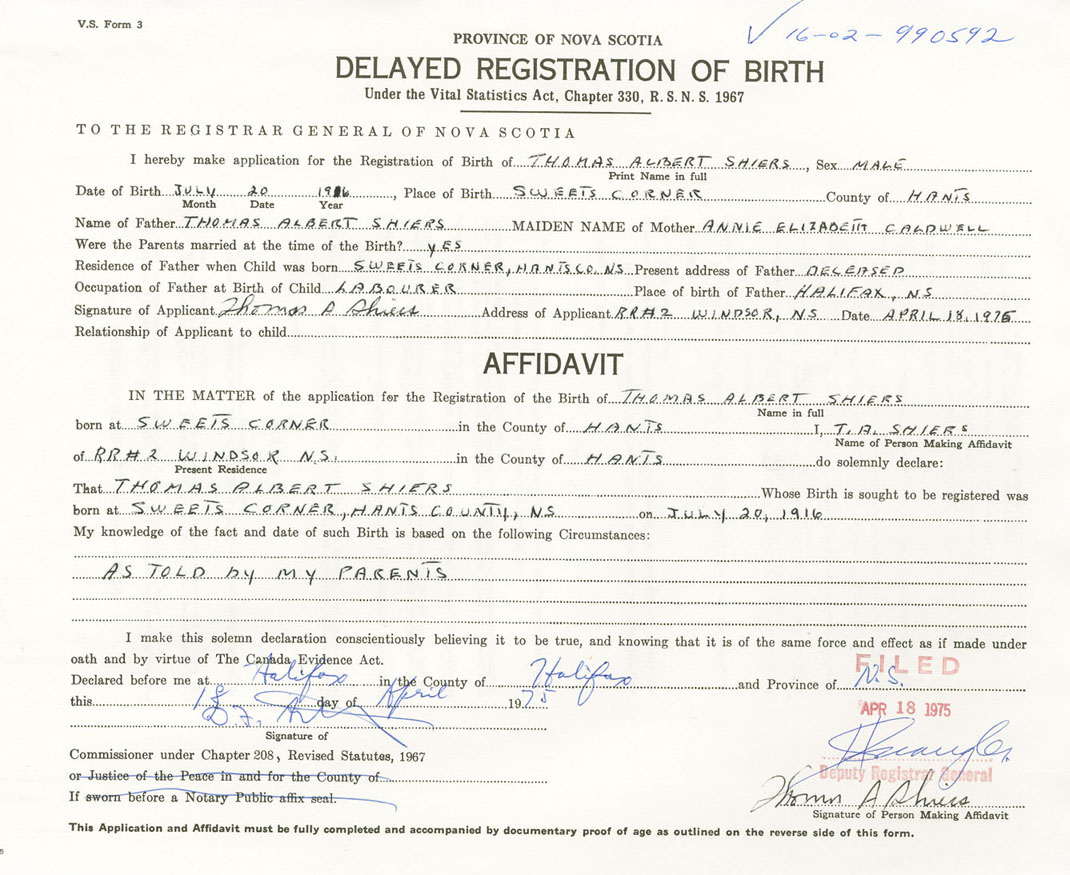 V.S. Form 3
16-02-990592
PROVINCE OF NOVA SCOTIA
DELAYED REGISTRATION OF BIRTH
Under the Vital Statistics Act, Chapter 330, R.S.N.S. 1967
TO THE REGISTRAR GENERAL OF NOVA SCOTIA
I hereby make application for the Registration of Birth of THOMAS ALBERT SHIERS, Sex MALE
Print Name in full
Date of Birth JULY 20 1916, Place of Birth SWEETS CORNER County of HANTS
Month Date Year
Name of Father THOMAS ALBERT SHIERS MAIDEN NAME of Mother ANNIE ELIZABETH CALDWELL
Were the Parents married at the time of the Birth? YES
Residence of Father when Child was born SWEETS CORNER, HANTS CO. NS Present address of Father DECEASED
Occupation of Father at Birth of Child LABOURER Place of birth of Father HALIFAX, NS
Signature of Applicant Thomas A Shiers Address of Applicant RR#2 WINDSOR, NS Date APRIL 18, 1975
Relationship of Applicant to child
AFFIDAVIT
IN THE MATTER of the application for the Registration of the Birth of THOMAS ALBERT SHIERS
Name in full
born at SWEETS CORNER in the County of HANTS I, T.A. SHIERS
Name of Person Making Affidavit
of RR#2 WINDSOR N.S. in the County of HANTS do solemnly declare:
Present Residence
That THOMAS ALBERT SHIERS Whose Birth is sought to be registered was
born at SWEETS CORNER, HANTS COUNTY, NS on JULY 20, 1916
My knowledge of the fact and date of such Birth is based on the following Circumstances:
AS TOLD by MY PARENTS
I make this solemn declaration conscientiously believing it to be true, and knowing that it is of the same force and effect as if made under
oath and by virtue of The Canada Evidence Act.
FILED
Declared before me at Halifax in the County of Halifax and Province of N.S.
this 18 day of April 1975
APR 18 1975
Signature of
Commissioner under Chapter 208, Revised Statutes, 1967
or Justice of the Peace in and for the County of
Deputy Registrar General
If sworn before a Notary Public affix seal.
Thomas A Shiers
Signature of Person Making Affidavit
This Application and Affidavit must be fully completed and accompanied by documentary proof of age as outlined on the reverse side of this form.